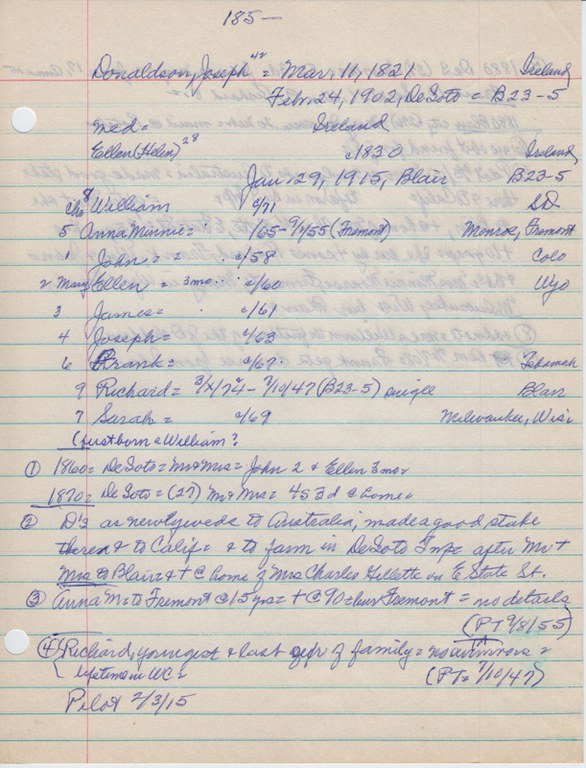 185-
Donaldson, Joseph = Mar, 11, 1821 Ireland
Feb, 24, 1902, DeSoto = B23-5
med = Ireland
Ellen (Helen) c1830 Ireland
Jan. 29, 1915, Blair B23-5
8 William c/71 SD
5 Anna Minnie = /65 - 9/4/55 (Fremont) Monroe, Fremont
1 John = c/58 Colo
2 Mary Ellen = 3mo c/60 Wyo
3 James = c/61
4 Joseph = c/63
6 Frank = c/67 Tekamah
9 Richard = 3/x/74 - 7/10/47 (B23-5) single Blair
7 Sarah = c/69 Milwaukee, Wis
(first born = William?
① 1860 = DeSoto = Mr & Mrs = John 2 & Ellen 3mo
1870 = DeSoto = (27) Mr & Mrs = 4S 3d @ home
② D's as newlyweds to Australia, made a good stake
there & to Calif = & to farm in DeSoto Twp = after Mr +
Mrs to Blair & + @ home of Mrs Charles Gillette on E State St.
③ Anna M = to Fremont @ 15 yrs = + @ 90 = her Fremont = no details
(PT 9/8/55)
④ Richard, youngest & last of family = no survivors =
lifetime in WC = (PT = 7/10/47)
Pilot 2/3/15